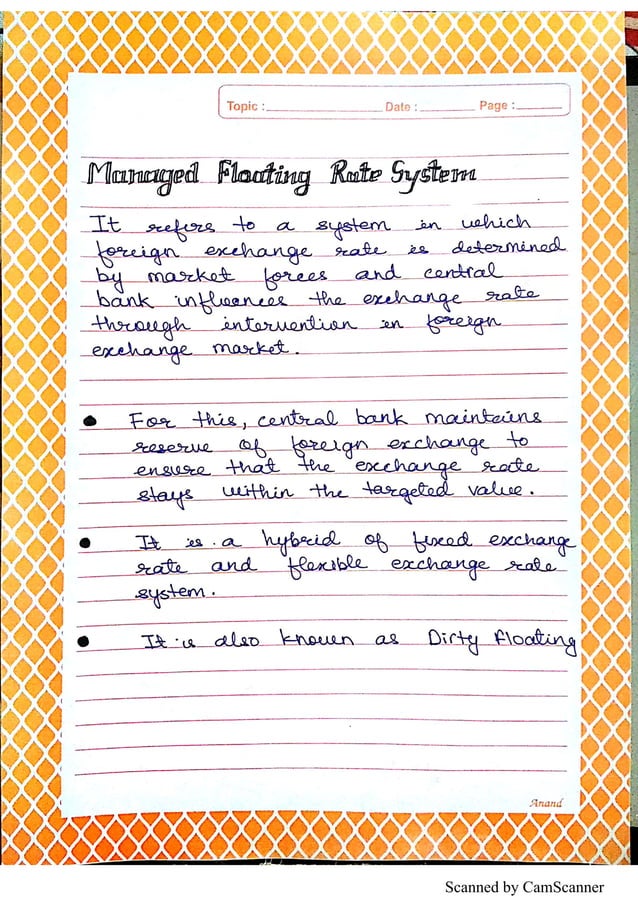 Topic : Date : Page :
Managed Floating Rate System
It refers to a system in which
foreign exchange rate is determined
by market forces and central
bank influences the exchange rate
through intervention in foreign
exchange market.
● For this, central bank maintains
reserve of foreign exchange to
ensure that the exchange rate
stays within the targeted value.
● It is a hybrid of fixed exchange
rate and flexible exchange rate
system.
● It is also known as Dirty Floating
Anand
Scanned by CamScanner